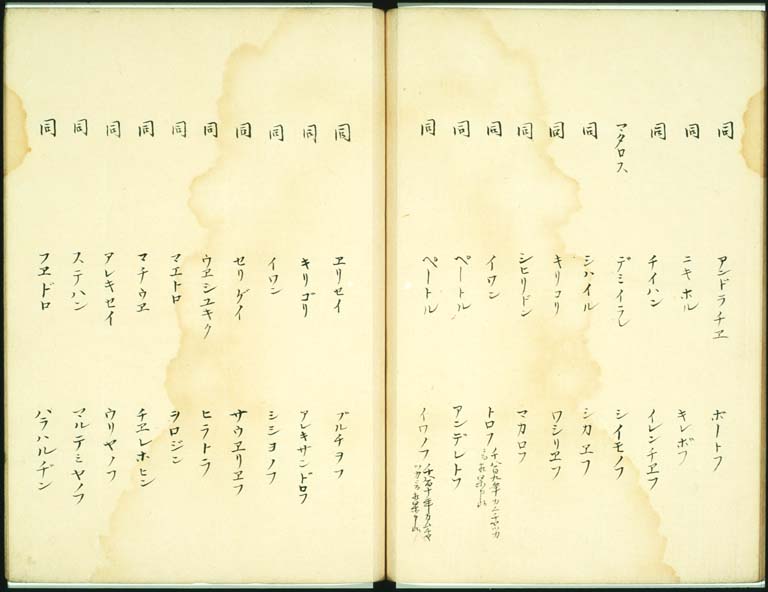 同 アンドラチヱ ボートフ
同 ニキホル キレボフ
同 チイハン イレンチヱフ
マタロス デミイラレ シイモノフ
同 シハイル シカヱフ
同 キリコリ ワシリヱフ
同 シヒリドン マカロフ
同 イワン トロフ
同 ペートル アンデレトフ
同 ペートル イワノフ
同 ヱリセイ ブルチヨフ
同 キリゴリ アレキサンドロフ
同 イワン シシヨノフ
同 セリゲイ サウヱリヱフ
同 ウヱシユキク ヒラトラ
同 マエトロ ヲロジン
同 マチウヱ チヱレホヒン
同 アレキセイ ウリヤノフ
同 ステハン マルテミヤノフ
同 フヱドロ ハラハルヂン